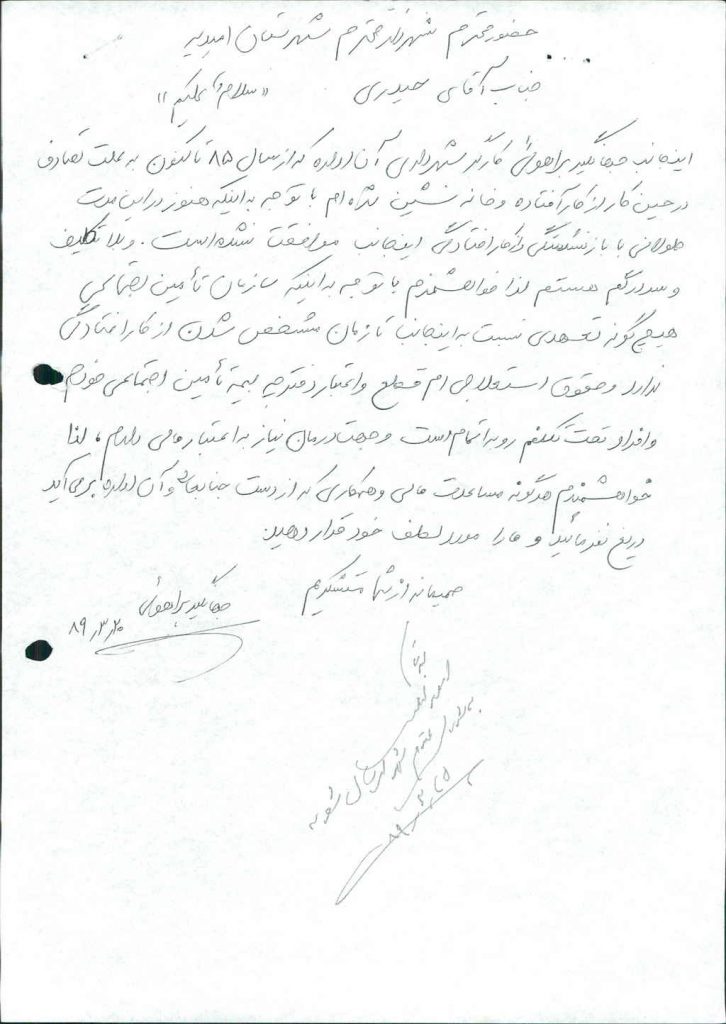 حضور محترم شهردار محترم شهرستان امیدیه
جناب آقای حیدری «سلام علیکم»
اینجانب جهانگیر براهوئی کارگر شهرداری آن اداره که از سال ۸۵ تاکنون به علت تصادف
در حین کار از کار افتاده و خانه نشین شده ام با توجه به اینکه هنوز در این مدت
طولانی با بازنشستگی و از کار افتادگی اینجانب موافقت نشده است. و بلا تکلیف
و سردرگم هستم لذا خواهشمندم با توجه به اینکه سازمان تأمین اجتماعی
هیچ گونه تعهدی نسبت به اینجانب تا زمان مشخص شدن از کار افتادگی
ندارد و حقوق استعلاجی ام قطع و اعتبار دفترچه بیمه تأمین اجتماعی خودم
و افراد تحت تکلفم رو به اتمام است و جهت درمان نیاز به اعتبار مالی دارم، لذا
خواهشمندم هرگونه مساعدت مالی و همکاری که از دست جنابعالی و آن اداره برمی آید
دریغ نفرمائید و ما را مورد لطف خود قرار دهید.
صمیمانه از شما متشکریم
جهانگیر براهوئی
۸۹,۳,۲۰